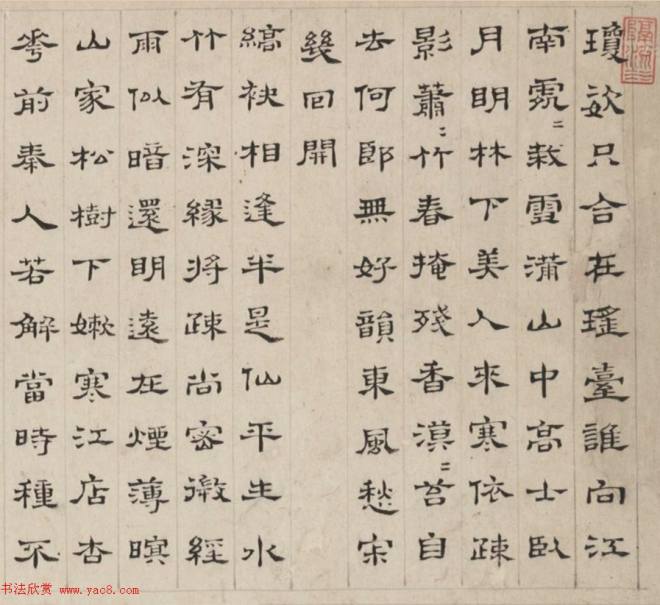 瓊姿只合在瑤臺誰向江
南處〻栽雪滿山中高士臥
月明林下美人來寒依疎
影蕭〻竹春掩殘香漠〻苔自
去何郎無好韻東風愁寂
幾回開
縞袂相逢半是仙平生水
竹有深緣將疎尚密微經
雨似暗還明遠在煙薄暝
山家松樹下嫩寒江店杏
花前秦人若解當時種不
书法欣赏 www.yac8.com